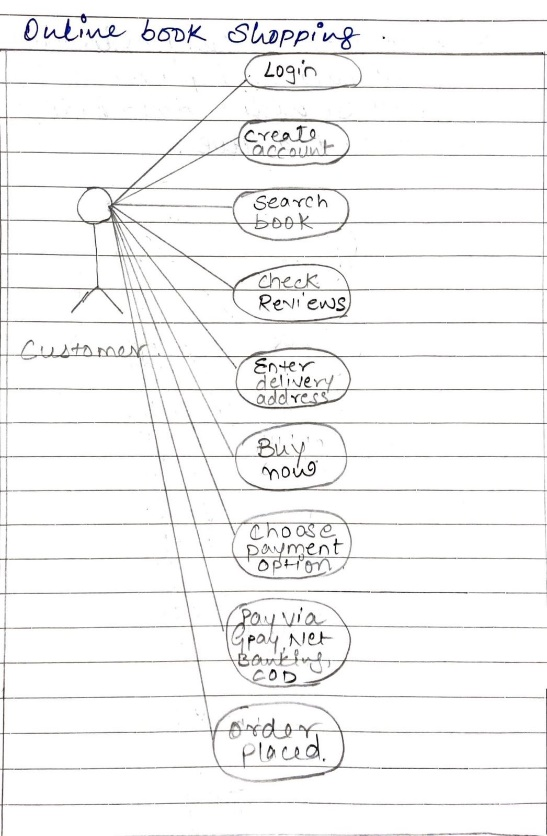 Online book Shopping.
Login
Create
account
Search
book
Check
Reviews
Customer.
Enter
delivery
address
Buy
now
Choose
payment
option
Pay via
Gpay, Net
Banking,
COD
Order
Placed.